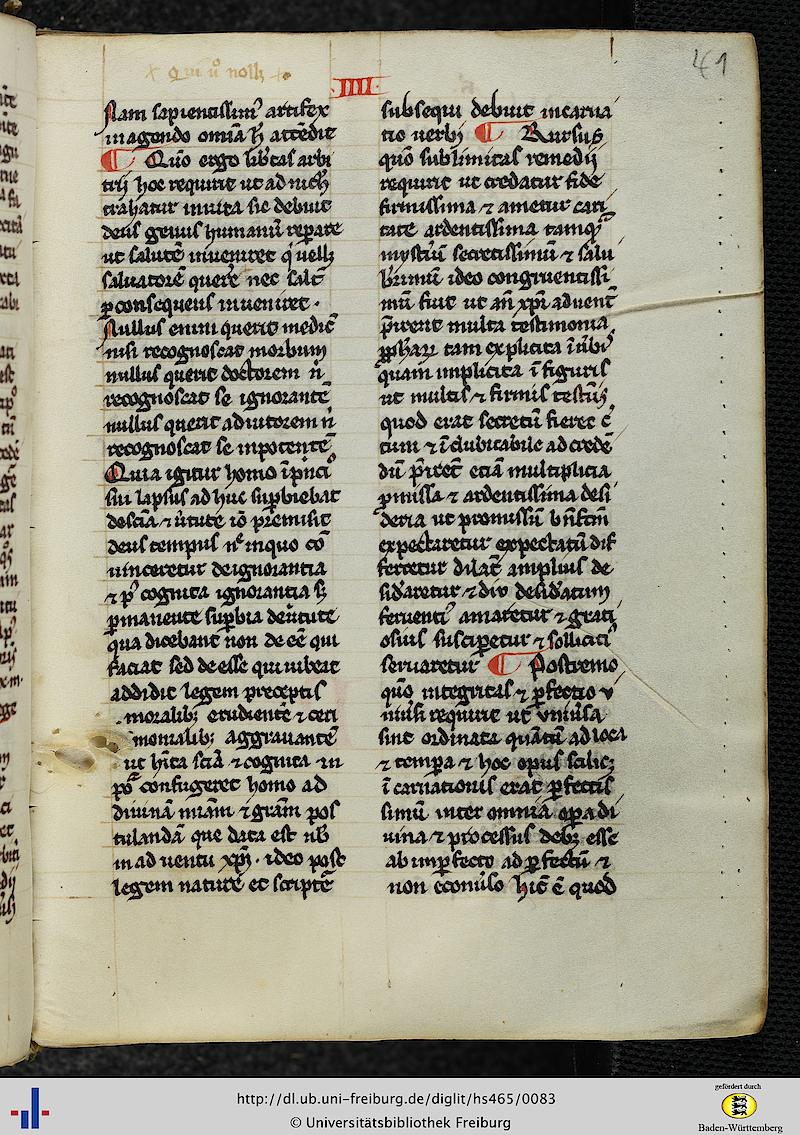 x Qui u̇ nollꝫ x
.IIII.
41
Nam sapientissimꝰ artifex
in agendo omnia h̄ attēdit
¶ Quō ergo lib̾tas arbi
trij hoc requirit ut ad nich̄
trahatur inuita sic debuit
deus genus humanū reparare
ut salutē inueniret qͥ uellꝫ
saluatorē querere nec salt̄
ꝑ consequens inueniret .
Nullus enim querit medic̄
nisi recognoscat morbum
nullus querit doctorem n̄
recognoscat se ignorantē
nullus querit adiutorem n̄
recognoscat se inpotentē
Quia igitur homo ī pͥncͥ
sui lapsus ad huc suꝑbiebat
de sciā ⁊ ụ̇tute iō premisit
deus tempus nͤ in quo cō
uinceretur de ignorantia
⁊ pꝰ cognita ignorantia sꝫ
ꝑmanente suꝑbia de ụ̇tute
qua dicebant non deēē qui
faciat sed deesse qui iubeat
addidit legem preceptis
moralibꝫ erudientē ⁊ ceri
monialibꝫ aggrauantē
ut hīta sciā ⁊ cognita in
poᵃ confugeret homo ad
diuinā miām ⁊ grām pos
tulandā que data est nob̄
in ad uentu xp̄i . ideo post
legem nature et scripte
subsequi debuit incarna
tio uerbi ¶ Rursus
quō sublimitas remedij
requirit ut credatur fide
firmissima ⁊ ametur cari
tate ardentissima tamqͣ
mysteriū secretissimū ⁊ salu
b̾rimū ideo congruentissi
mū fuit ut an̄ xp̄i aduent̄
p̄irent multa testimonia
ꝓph̄arꝝ tam explicita ī ụ̇bͥ
quam implicita ī figuris
ut multis ⁊ firmis testīs
quod erat secretū fieret c̄
tum ⁊ īdubitabile ad crede
dū p̄irēt etiā multiplicia
ꝓmissa ⁊ ardentissima desi
deria ut promissū bn̄fm̄
expectaretur expectatū dif
ferretur dilat̄ amplius de
sid̾aretur ⁊ diu desid̾atum
feruentiꝰ amaretur ⁊ grati
osius susciꝑetur ⁊ sollicitiꝰ
seruaretur ¶ Postremo
quō integritas ⁊ ꝑfectio v
niụ̇si requirit ut vniụ̇sa
sint ordinata quātū ad loca
⁊ temꝑa ⁊ hoc opus scilicꝫ
īcarnationis erat ꝑfectis
simū inter omnia oꝑa di
uina ⁊ processus debꝫ esse
ab imꝑfecto ad ꝑfectū ⁊
non econụ̇so hīc ē quod
http://dl.ub.uni-freiburg.de/diglit/hs465/0083
© Universitätsbibliothek Freiburg
gefördert durch
Baden-Württemberg